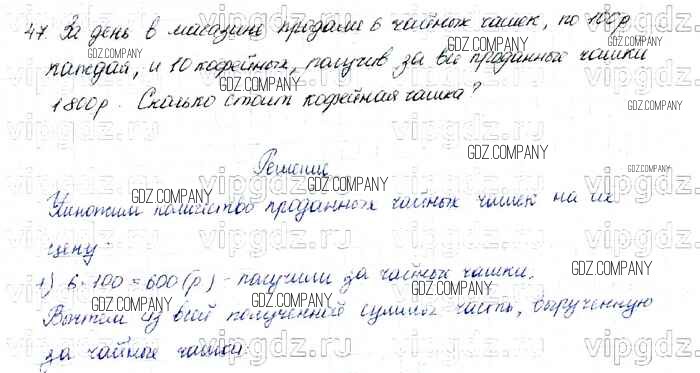 47. За день в магазине продали 6 чайных чашек, по 100р.
каждая, и 10 кофейных, получив за все проданные чашки
1800р. Сколько стоит кофейная чашка?
Решение
Умножим количество проданных чайных чашек на их
цену.
1) 6·100=600(р) - получили за чайные чашки.
Вычтем из всей полученной суммы часть, вырученную
за чайные чашки.
GDZ.COMPANY
vipgdz.ru